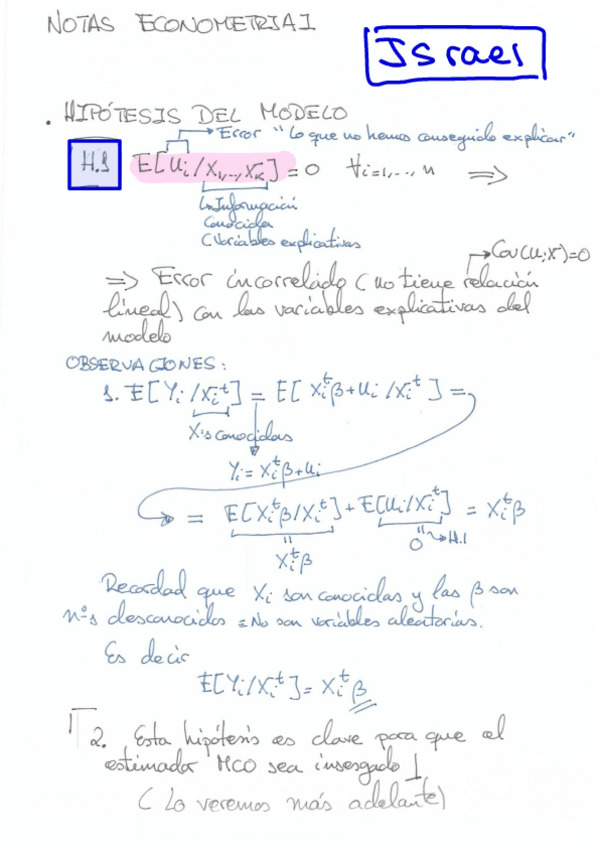 NOTAS ECONOMETRIA I
Israel
. HIPÓTESIS DEL MODELO
Error "Lo que no hemos conseguido explicar"
H.1 E[Ui/X1,..,XK]=0 ∀i=1,..., n ⇒
Información
Conocida
(Variables explicativas
Cov(U;X)=0
⇒ Error incorrelado (no tiene relación
lineal) con las variables explicativas del
modelo
OBSERVACIONES:
1. E[Yi/Xi^t] = E[Xi^tβ+Ui/Xi^t] =
X's conocidas
Yi = Xi^tβ+Ui
= E[Xi^tβ/Xi^t]+E[Ui/Xi^t] = Xi^tβ
" "
Xi^tβ 0 ↝ H.1
Recordad que Xi son conocidas y las β son
nºs desconocidos = No son variables aleatorias.
Es decir
E[Yi/Xi^t] = Xi^tβ
2. Esta hipótesis es clave para que el
estimador MCO sea insesgado
(Lo veremos más adelante)